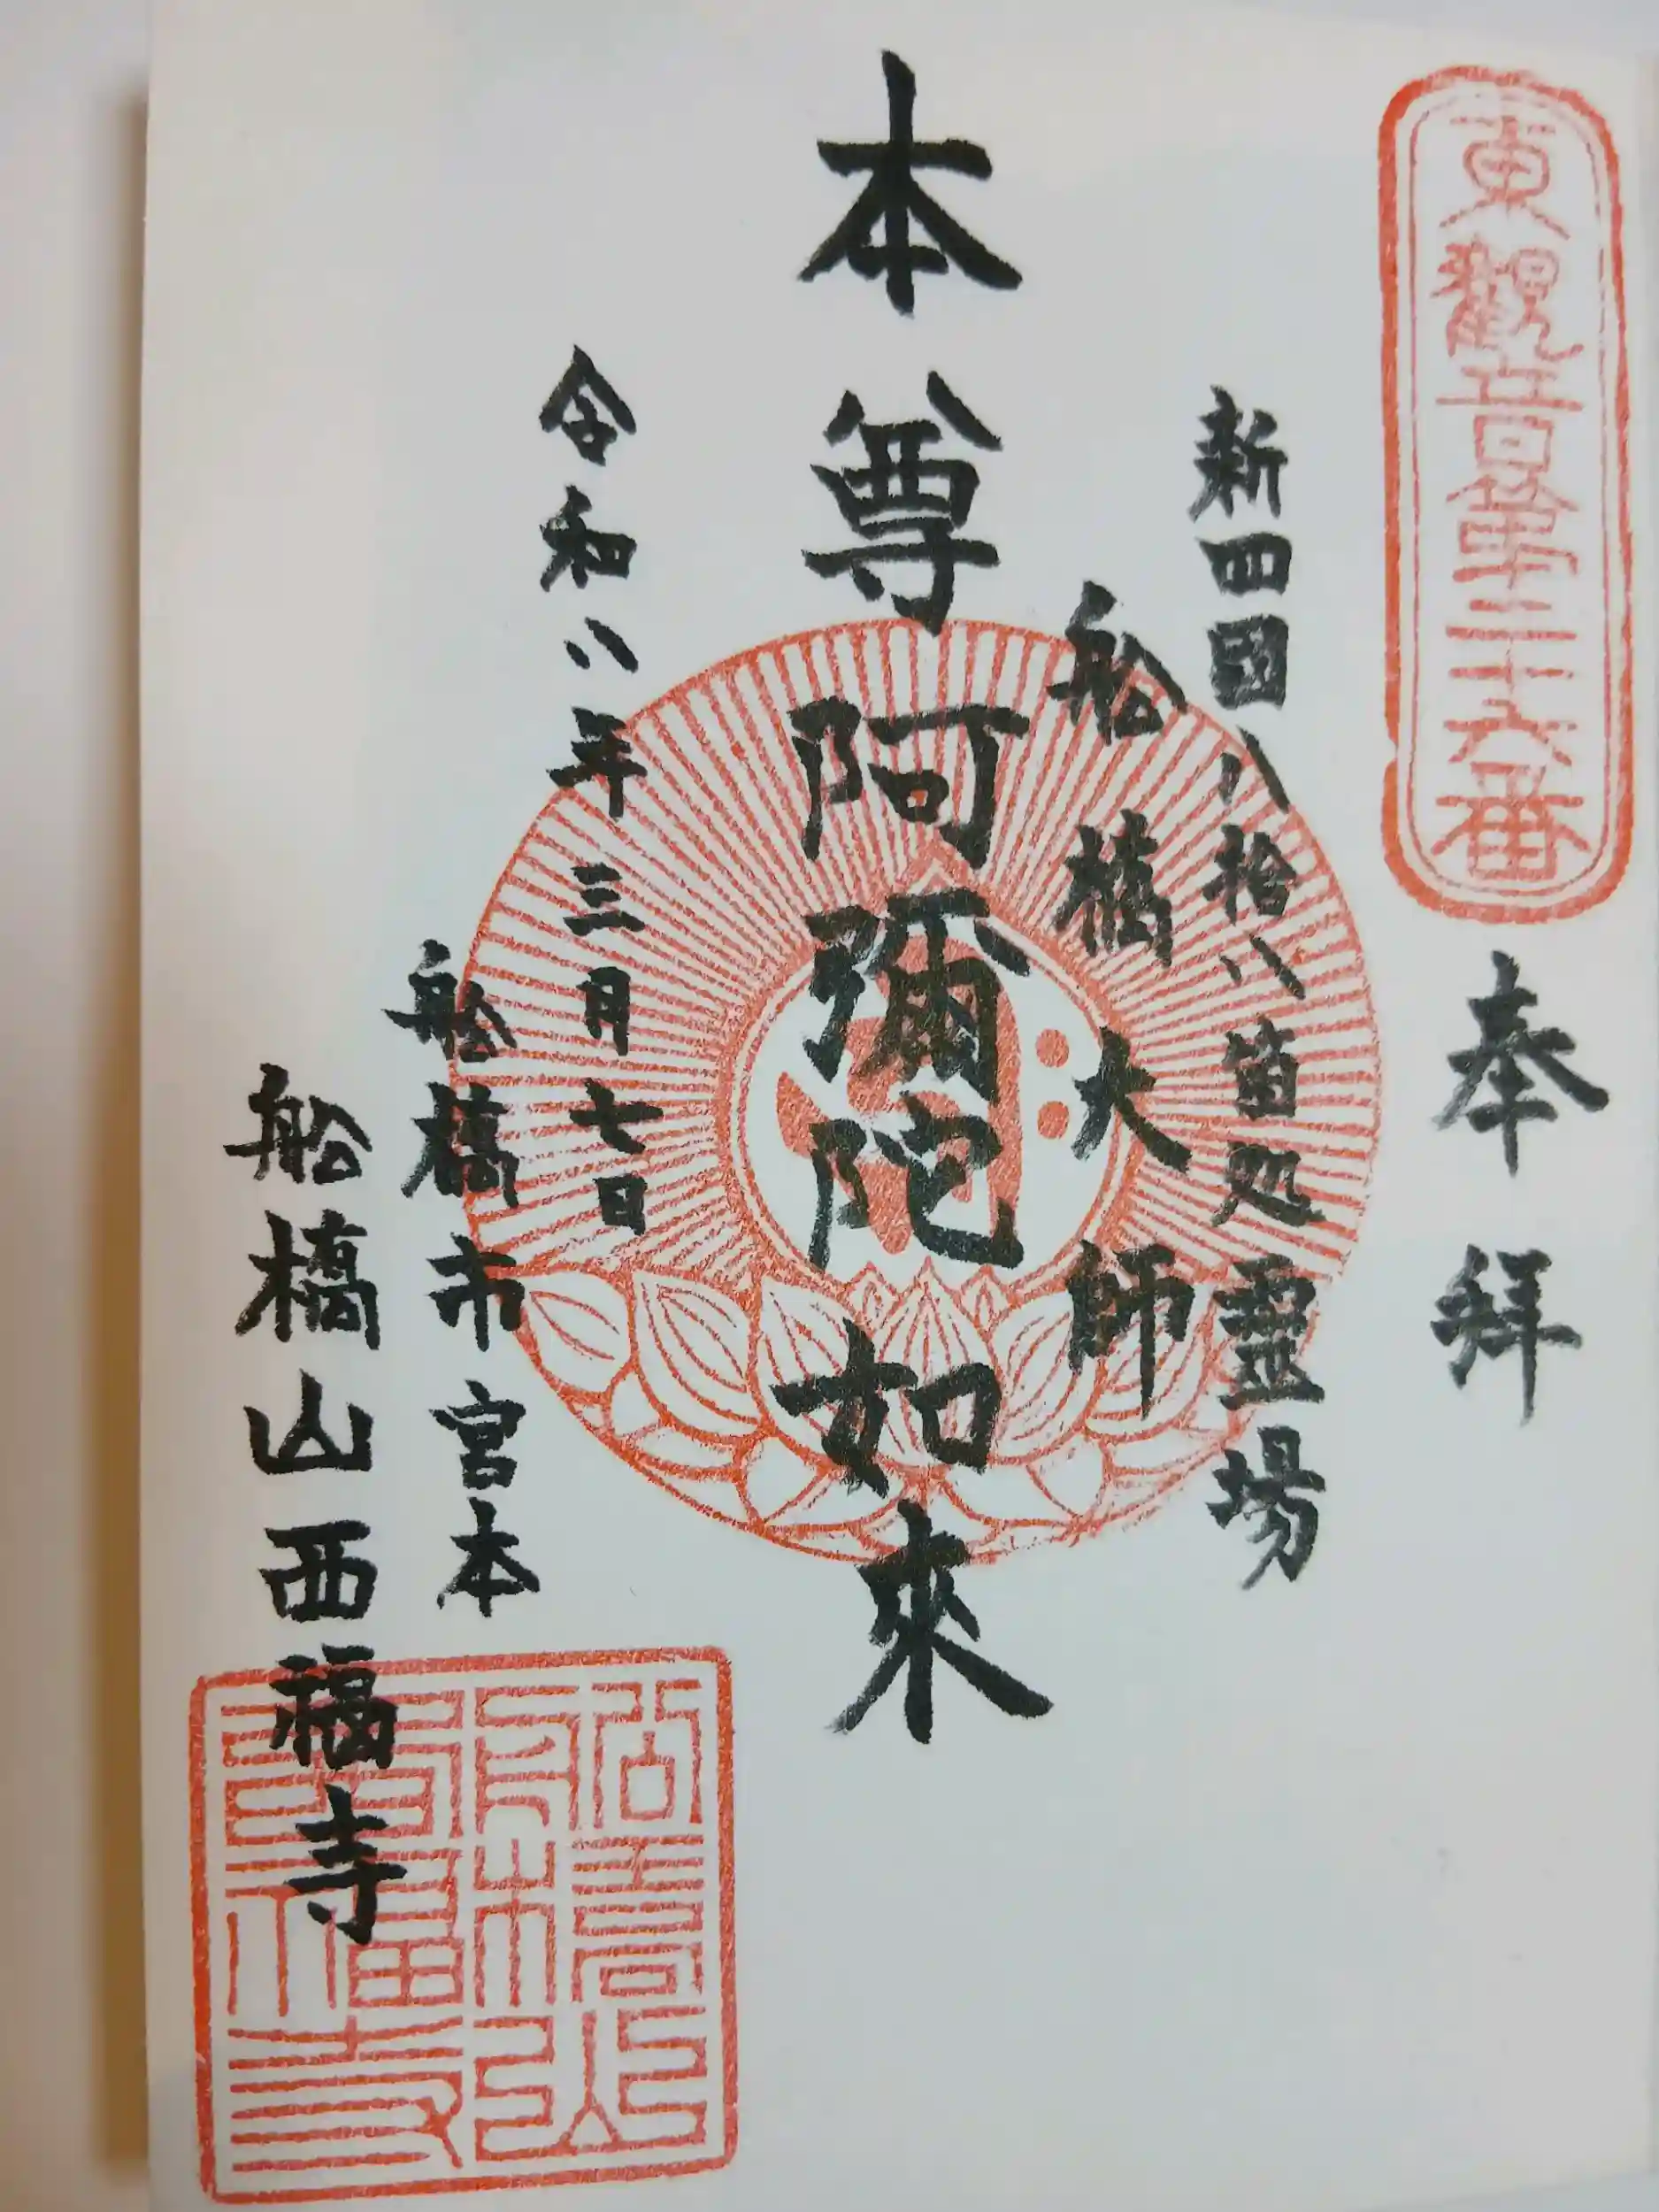 東觀音第三十六番
奉拜
新四國八拾八箇処霊場
船橋大師
本尊阿彌陀如來
令和八年三月七日
船橋市宮本
船橋山西福寺